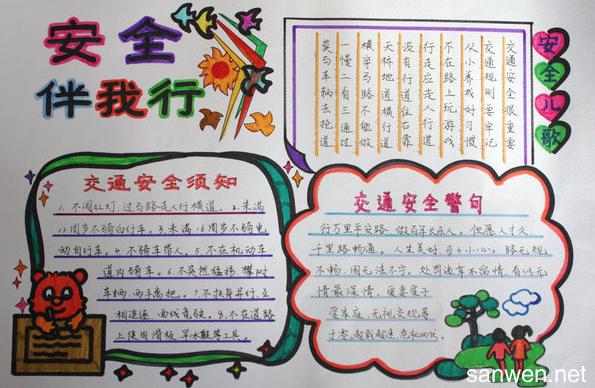 安全
伴我行
安全儿歌
交通安全很重要
交通规则要牢记
从小养成好习惯
不在路上玩游戏
行走应走人行道
没有行道往右靠
天桥地道横行道
横穿马路不能做
一慢二看三通过
莫与车辆去抢道
交通安全须知
1.不闯红灯.过马路走人行横道。2.未满
12周岁不骑自行车。3.未满16周岁不骑电
动自行车。4.不骑车带人。5.不在机动车
道内骑车。6.不突然猛拐,攀附
车辆.两手离把。7.不扶身并行,互
相追逐、曲线竞驶。8.不在道路
上使用滑板、旱冰鞋等工具。
交通安全警句
行万里平安路 做百年长乐人。但愿人久
千里路畅通。人生美好 步步小心。路无规
不畅.国无法不宁。处罚违章不留情,看似无
情最深情。爱妻爱子
爱家庭 无视交规等
于零.超载超速 危机四伏
sanwen.net